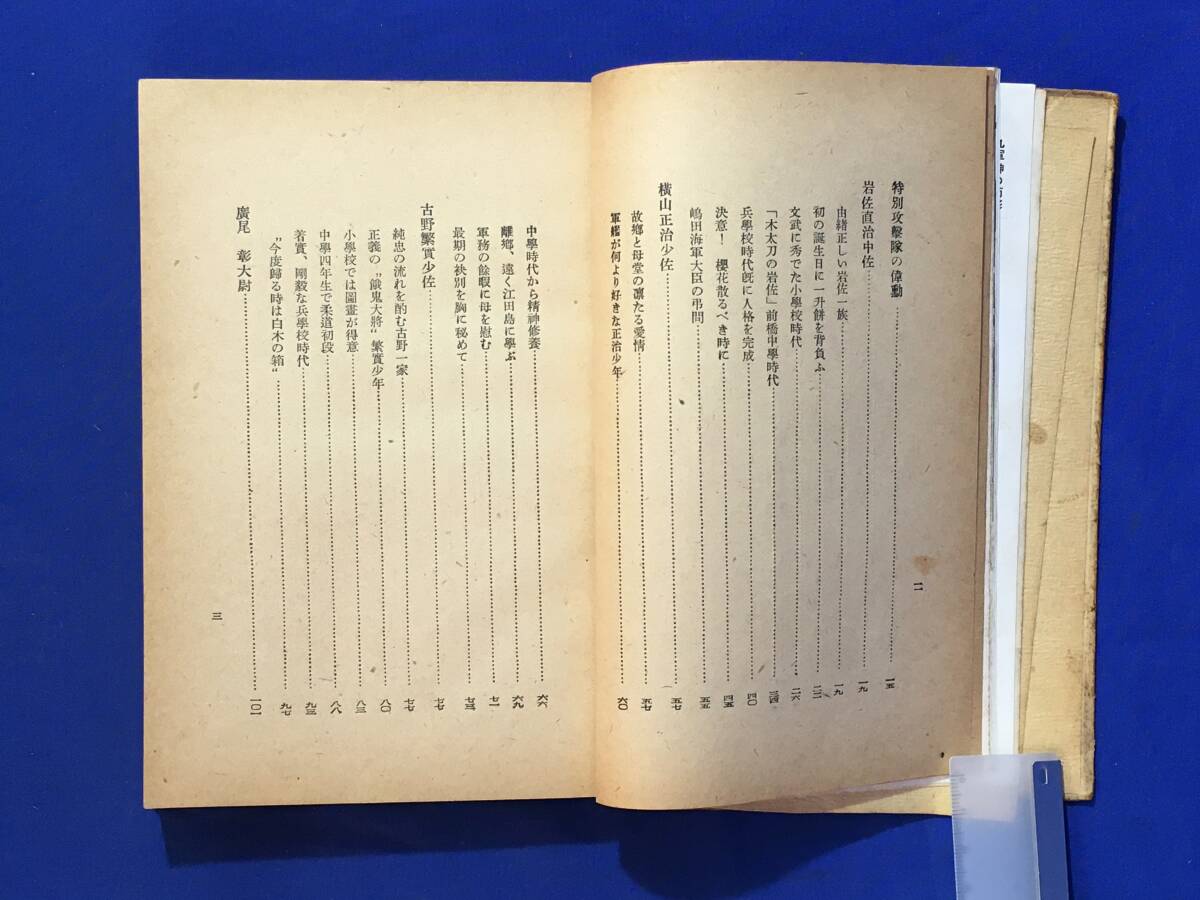 特別攻擊隊の偉勳……一五
岩佐直治中佐……一九
由緖正しい岩佐一族……一九
初の誕生日に一升餅を背負ふ……二二
文武に秀でた小學校時代……二六
「木太刀の岩佐」前橋中學時代……三四
兵學校時代旣に人格を完成……四〇
決意！　櫻花散るべき時に……四五
嶋田海軍大臣の弔問……五五
橫山正治少佐……五七
故鄕と母堂の凛たる愛情……五七
軍艦が何より好きな正治少年……六〇
二
中學時代から精神修養……六六
離鄕、遠く江田島に學ぶ……六九
軍務の餘暇に母を慰む……七一
最期の袂別を胸に秘めて……七三
古野繁實少佐……七七
純忠の流れを酌む古野一家……七七
正義の〝餓鬼大將〟繁實少年……八〇
小學校では圖畫が得意……八三
中學四年生で柔道初段……八八
着實、剛毅な兵學校時代……九三
〝今度歸る時は白木の箱〟……九七
廣尾　彰大尉……一〇一
三